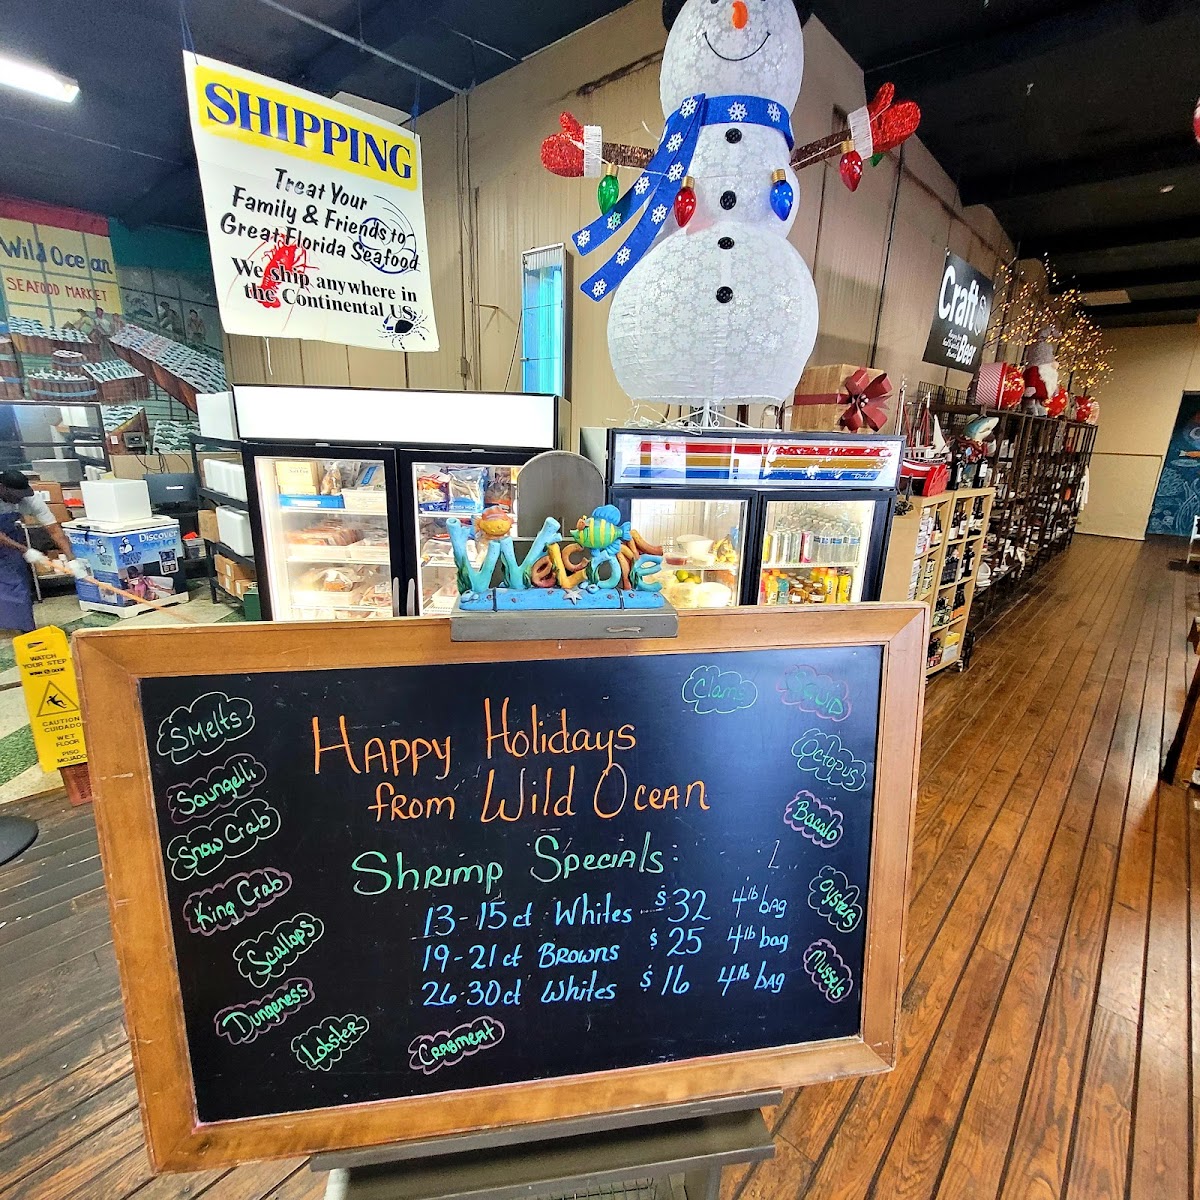 SHIPPING
Treat Your
Family & Friends to
Great Florida Seafood
We ship anywhere in
the Continental US.
Wild Ocean
SEAFOOD MARKET
Craft
Beer
Welcome
Discover
WATCH
YOUR STEP
CAUTION
CUIDADO
WET
FLOOR
PISO
MOJADO
Happy Holidays
from Wild Ocean
Shrimp Specials
13-15ct Whites $32 4lb bag
19-21ct Browns $25 4lb bag
26-30ct Whites $16 4lb bag
Smelts
Saungelli
Snow Crab
King Crab
Scallops
Dungeness
Lobster
Crabmeat
Clams
Squid
Octopus
Bacalo
Oysters
Mussels